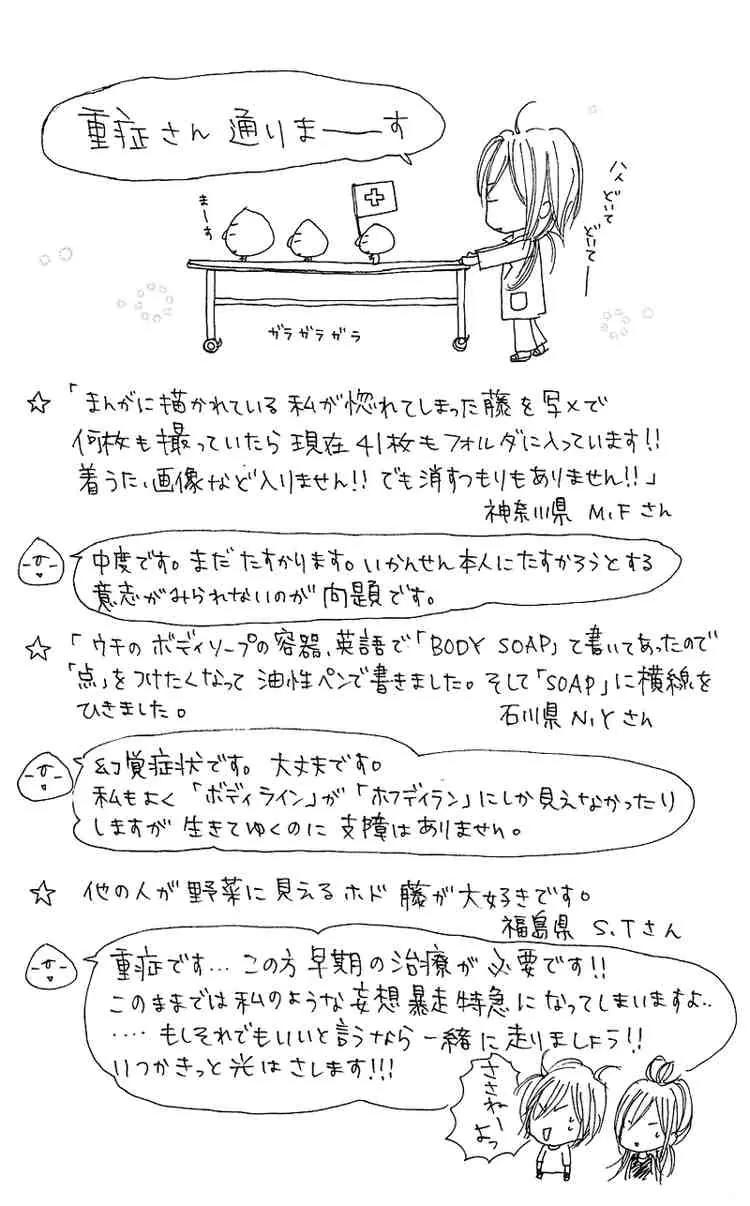 重症さん 通りまーーす
まーす
ハイ どいて どいてー
ガラガラガラ
☆「まんがに描かれている 私が惚れてしまった藤を写メで
何枚も撮っていたら 現在 41枚もフォルダに入っています!!
着うた、画像など入りません!! でも消すつもりもありません!!」
神奈川県 M.Fさん
中度です。まだ たすかります。いかんせん本人にたすかろうとする
意志がみられないのが 問題です。
☆「ウチの ボディソープの容器、英語で「BODY SOAP」て書いてあったので
「点」をつけたくなって 油性ペンで書きました。そして「SOAP」に横線を
ひきました。
石川県 N.Yさん
幻覚症状です。大丈夫です。
私もよく「ボディライン」が「ホフディラン」にしか見えなかったり
しますが 生きてゆくのに 支障はありません。
☆ 他の人が野菜に見えるホド 藤が大好きです。
福島県 S.Tさん
重症です… この方 早期の治療が 必要です!!
このままでは私のような妄想暴走特急になってしまいますよ‥
‥‥ もしそれでもいいと言うなら 一緒に走りましょう!!
いつかきっと光はさします!!!
ささねーよっ